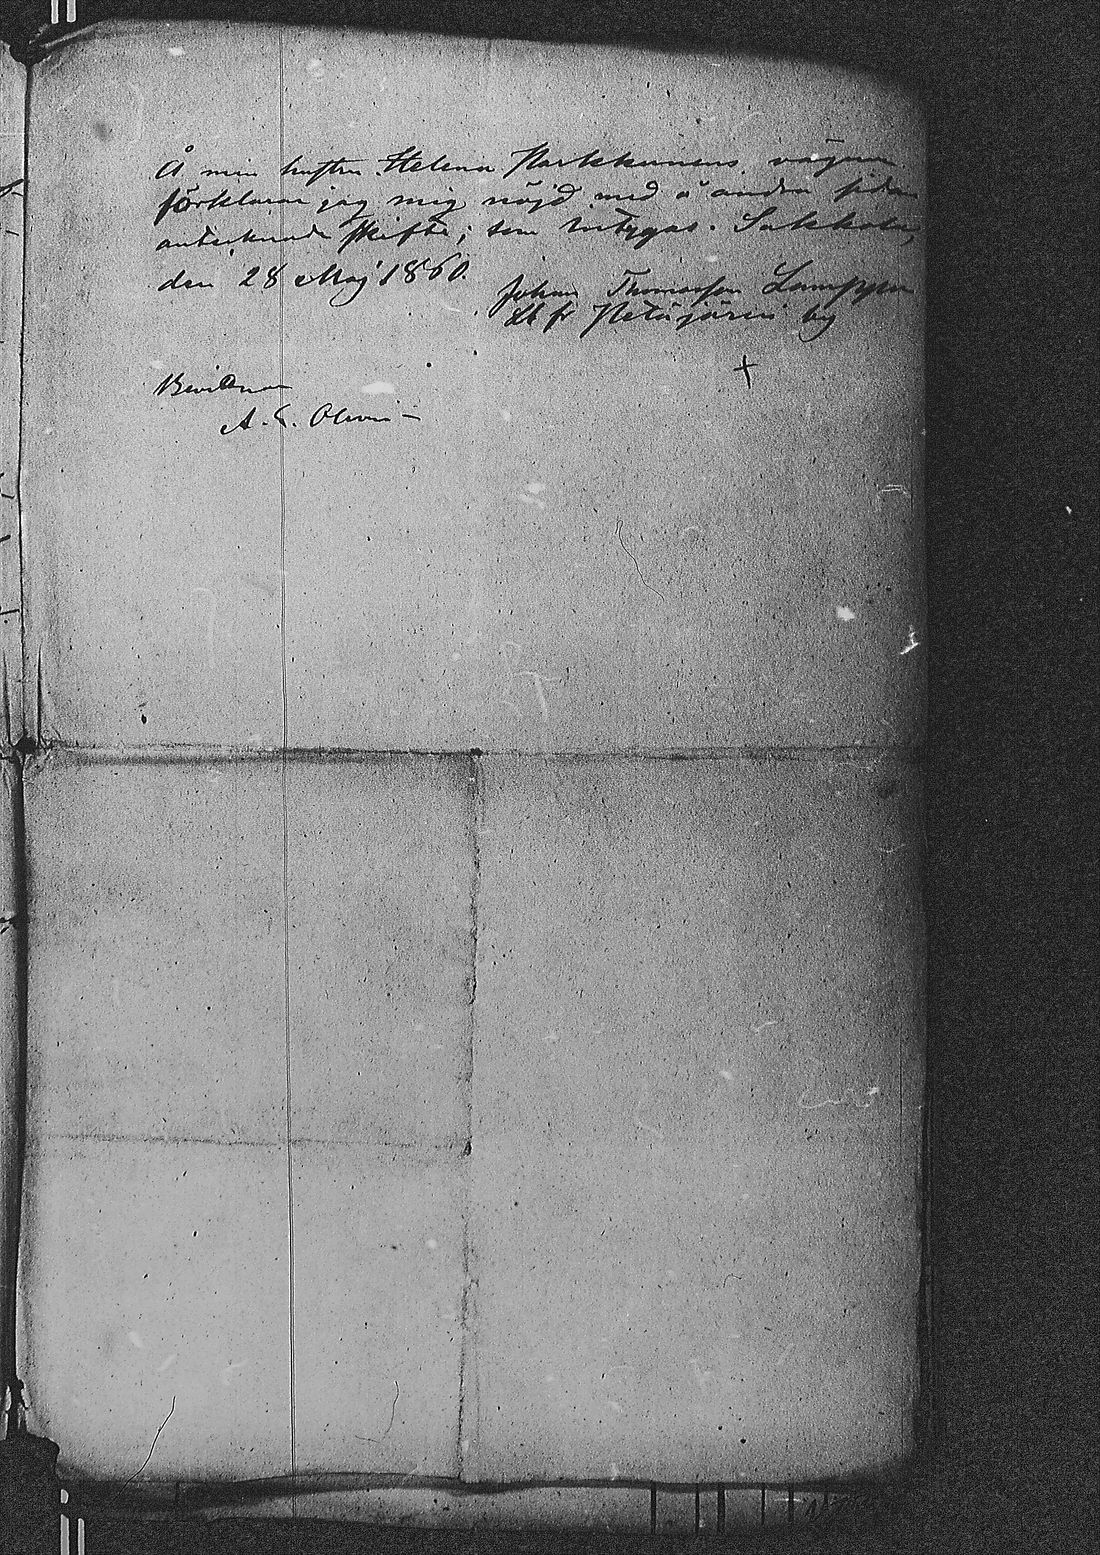 Å min hustru Helena Parkkunens vägnar
förklarar jag mig nöjd med å andra sidan
antecknade skifte; som betygas. Sakkola,
den 28 Maj 1860.
Johan Thomasson Lamppu
fr Petäjärvi by
+
Bevittnar
A. E. Olsoni